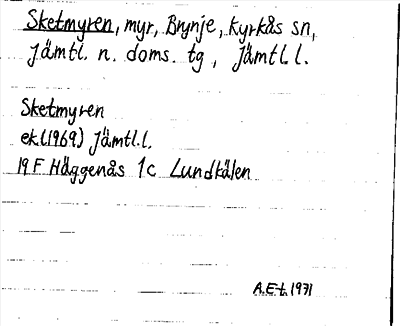 Sketmyren, myr, Brynje, Kyrkås sn,
Jämtl. n. doms. tg, Jämtl. l.
Sketmyren
ek.(1969) Jämtl.l.
19F Häggenås 1c Lundkälen
A.E-t. 1971